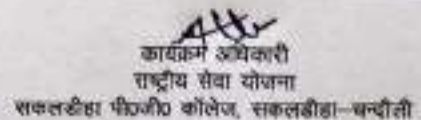 कार्यक्रम अधिकारी
राष्ट्रीय सेवा योजना
सकलडीहा पी०जी० कॉलेज, सकलडीहा–चन्दौली